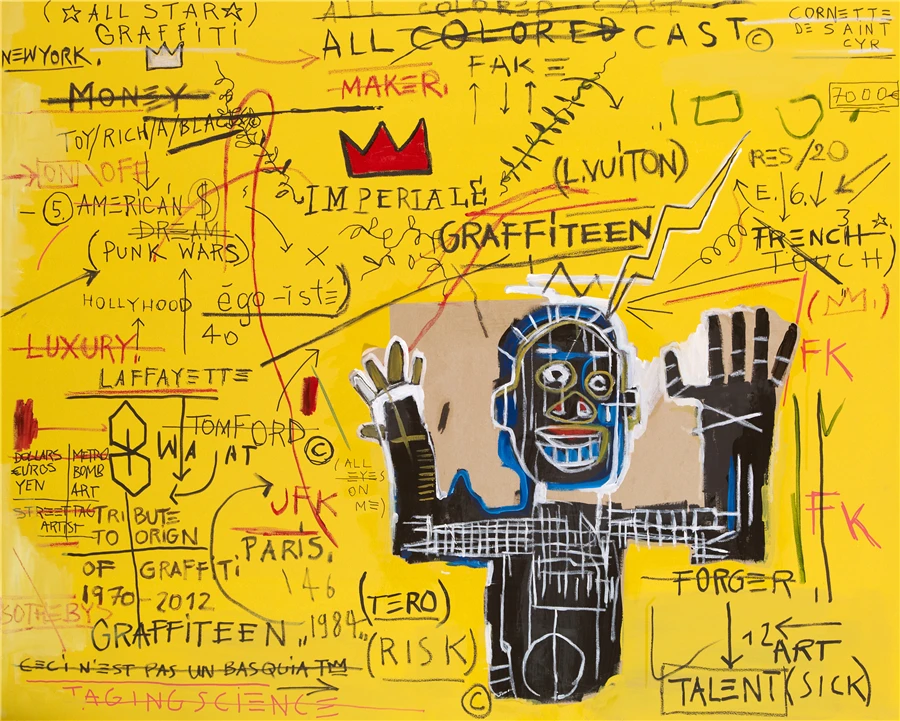 (☆ALL STAR☆)
GRAFFITI
NEWYORK.
ALL COLORED CAST
ALL COLORED CAST ©
CORNETTE
DE SAINT
CYR
FAKE
MAKER.
7000€
MONEY
TOY/RICH/A/BLACK
ON \OFF
(L.VUITON)
RES/20
E. 6.
IMPERIALE
5. AMERICAN $
DREAM
(PUNK WARS)
GRAFFITEEN
3
FRENCH
TOUCH)
HOLLYHOOD
égo-isté)
40
LUXURY.
LAFFAYETTE
FK
TOMFORD
©
WA AT
DOLLARS
EUROS
YEN
METRO
BOMB
ART
STREET TAG
ARTIST
(ALL
EYES
ON
ME)
JFK
FK
TRIBUTE
TO ORIGN
OF GRAFFITI
1970-2012
PARIS.
\46
SOTHEBYS
GRAFFITEEN „1984"
(TERO)
(RISK)
FORGER
12
ART
TALENT (SICK)
CECI N'EST PAS UN BASQUIA TM
TAGINGSCIENCE
©